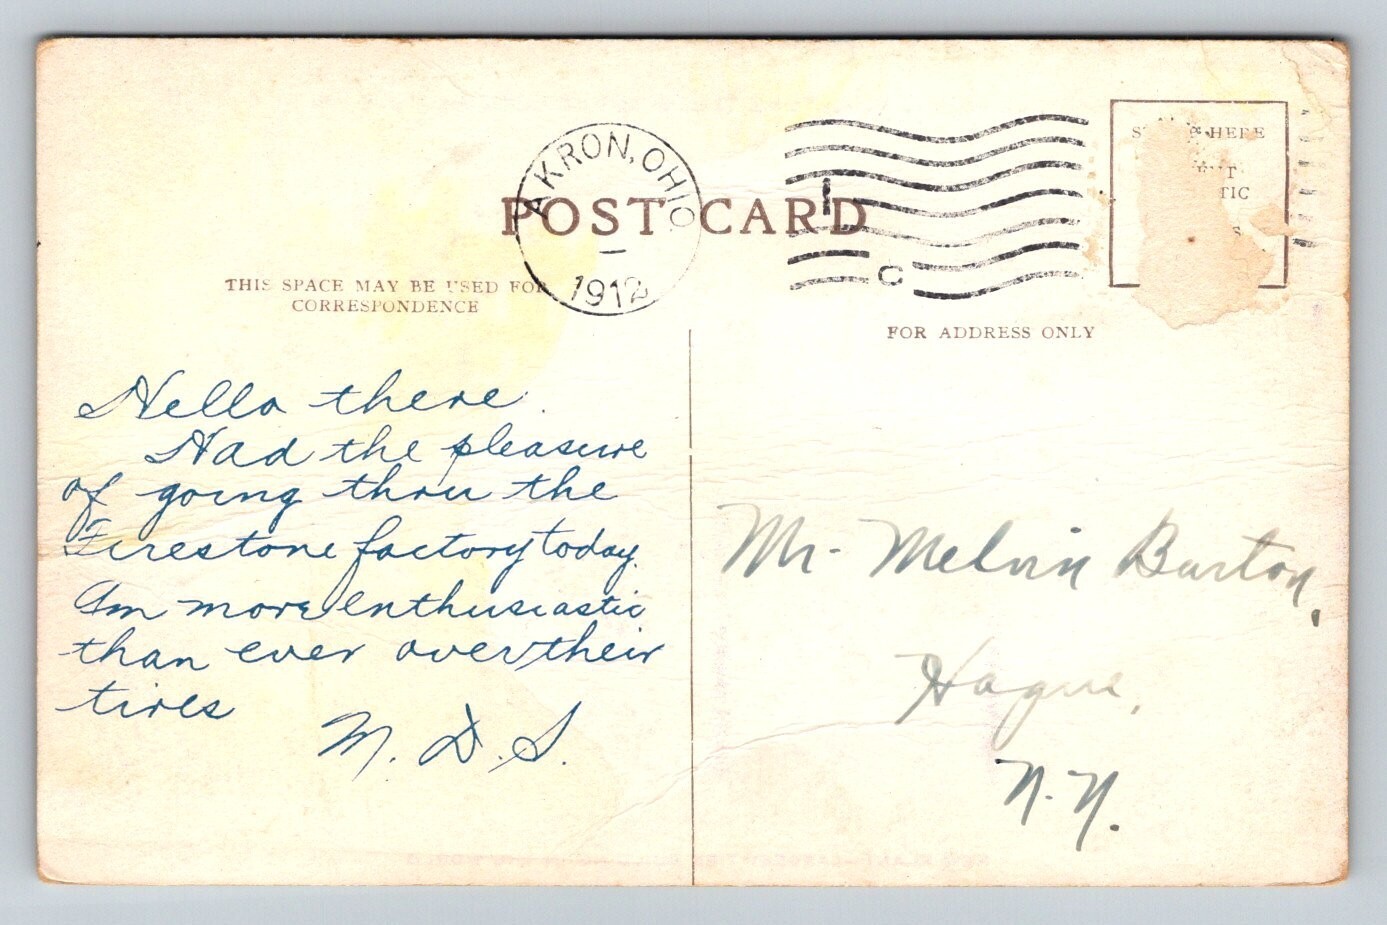 AKRON, OHIO
1912
POST CARD
C
HERE
TIC
S
THIS SPACE MAY BE USED FOR
CORRESPONDENCE
FOR ADDRESS ONLY
Hello there.
Had the pleasure
of going thru the
Firestone factory today.
Am more enthusiastic
than ever over their
tires
M. D. S.
Mr. Melvin Burton,
Hague,
N. Y.